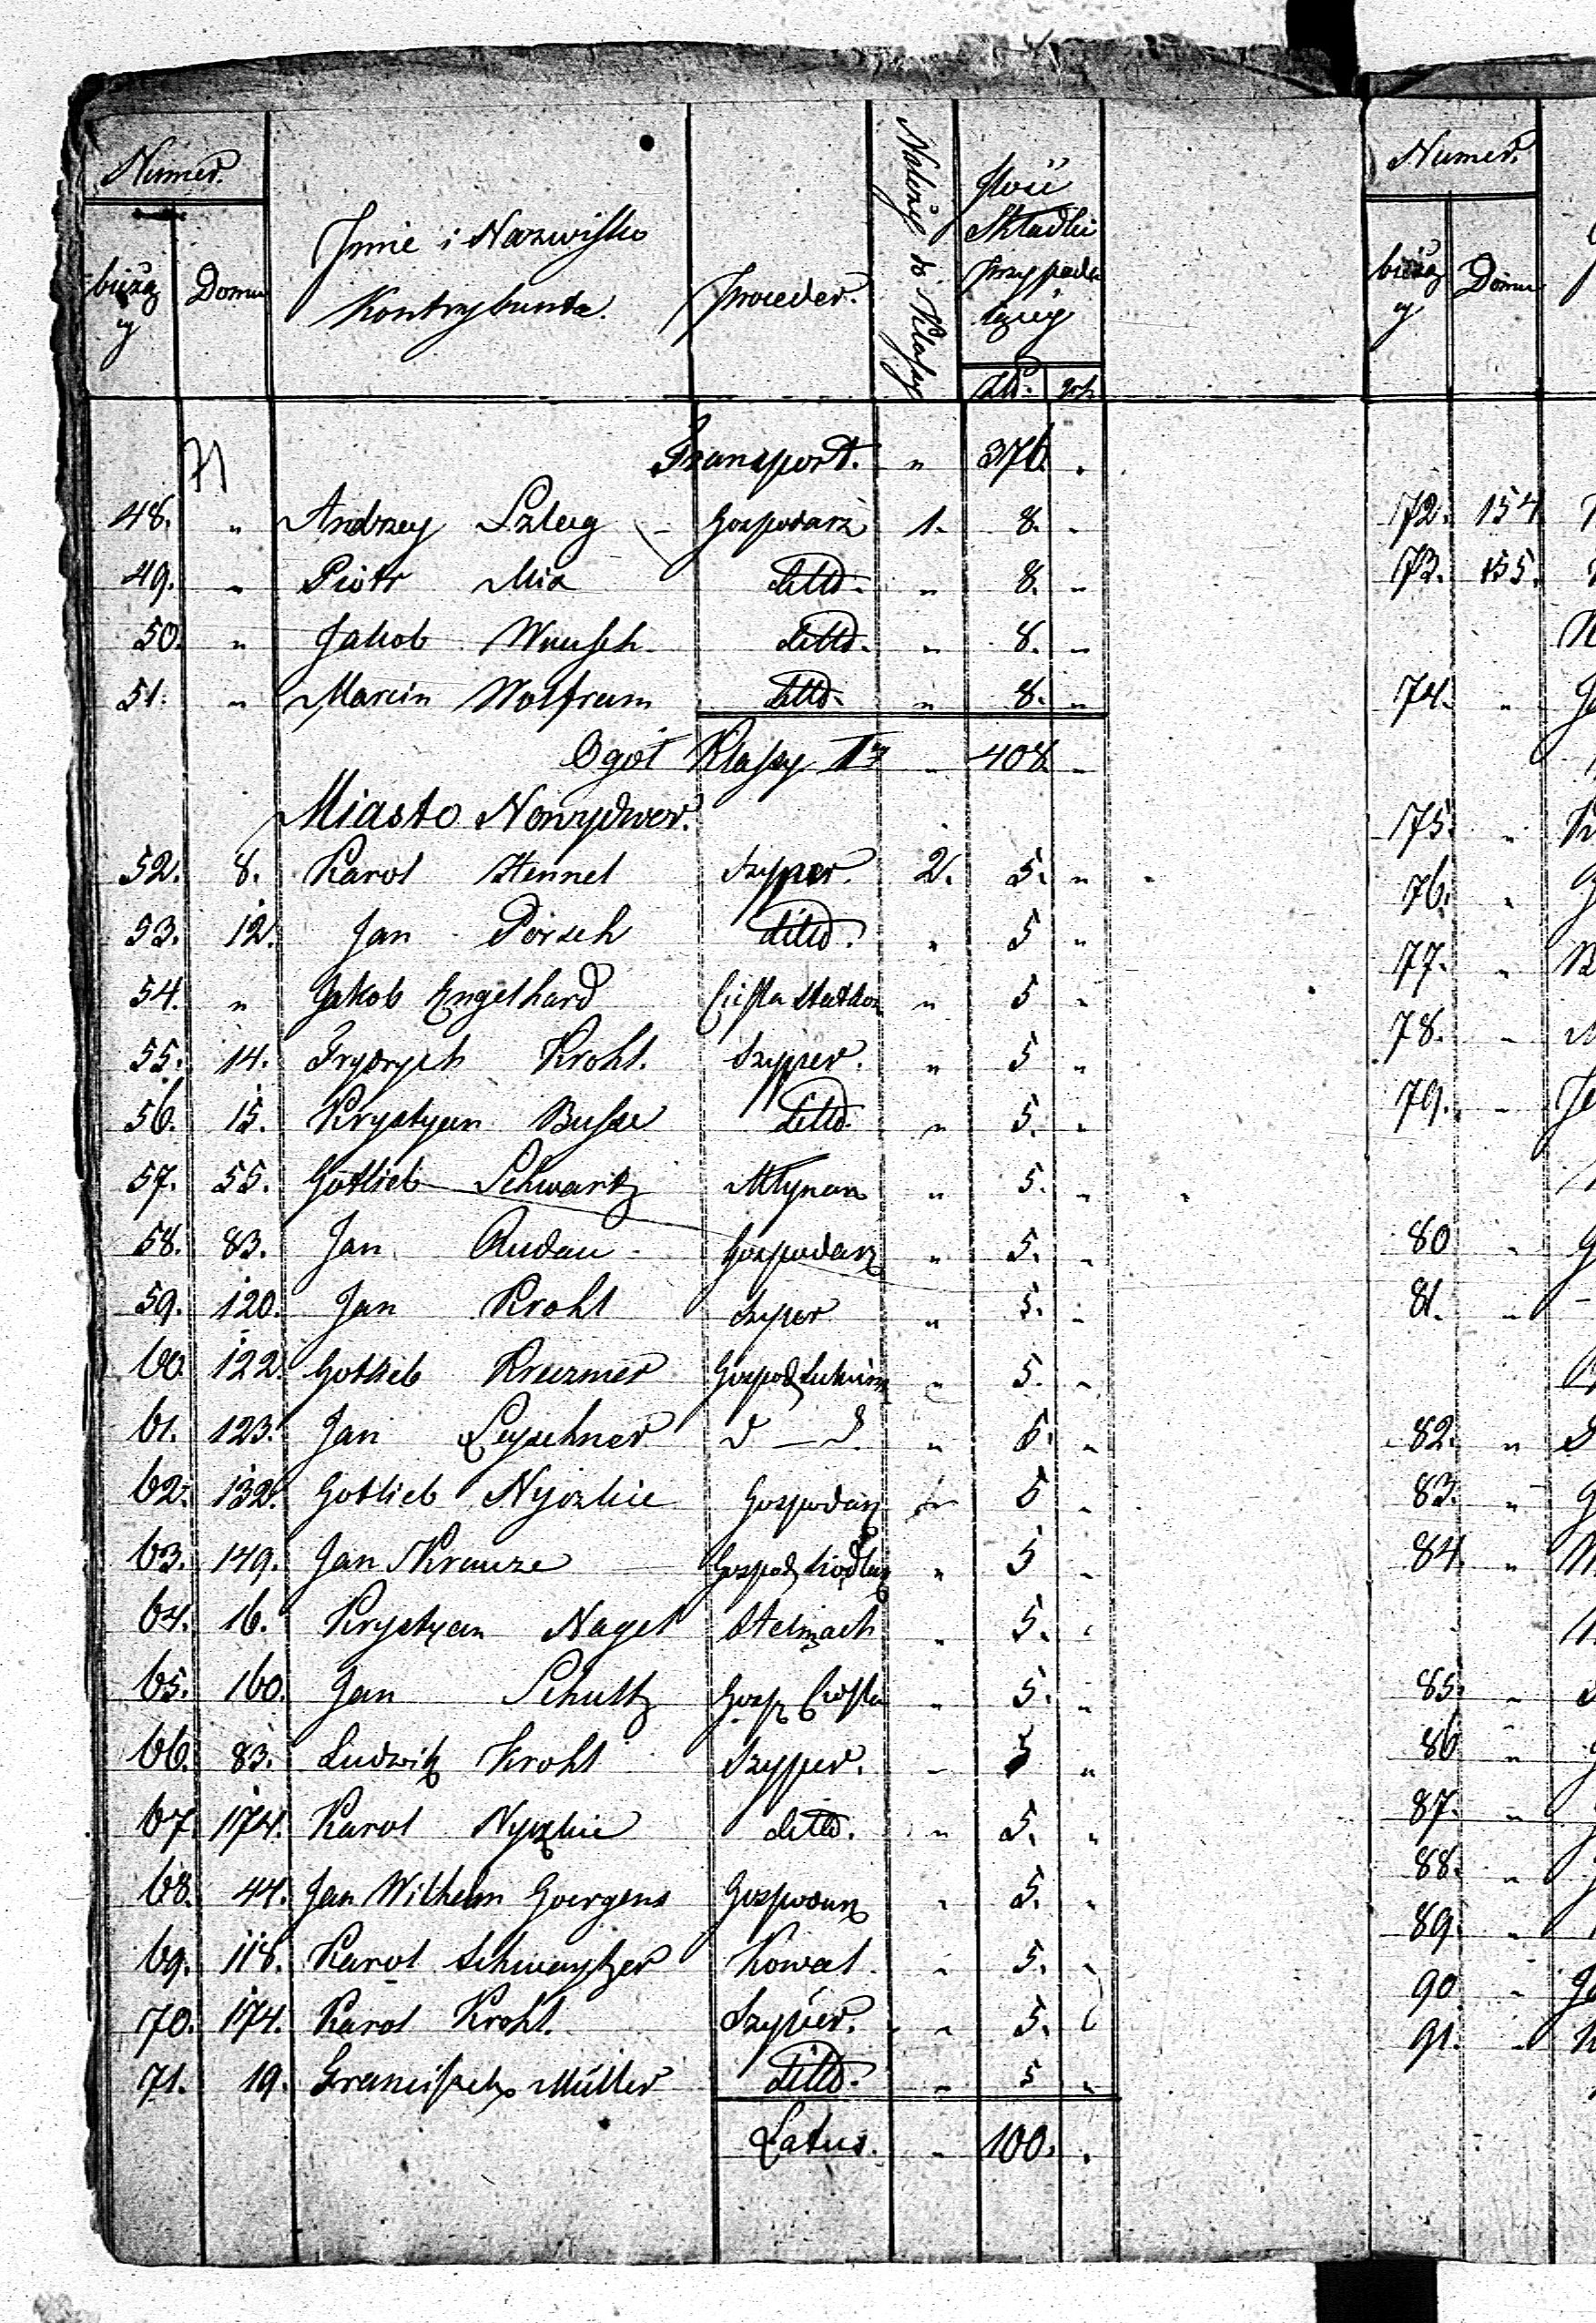 Numer.
bieżący Domu
Imie i Nazwisko Kontrybuenta.
Proceder.
Należy do Klassy
Ilość Składki Przypadaiącéy
Złtt. gr.
Transport. " 376. "
48. " Andrzey Szleg - Gospodarz 1. 8. "
49. " Piotr Mix ditto. " 8. "
50. " Jakob Wunsch ditto. " 8. "
51. " Marcin Wolfram ditto. " 8. "
Ogół Klassy Iy " 408 "
Miasto Nowydwor.
52. 8. Karol Hennel Szyper. 2. 5. "
53. 12. Jan Pörsch ditto. " 5 "
54. " Jakob Engelhard Cieśla Statków " 5 "
55. 14. Frydrych Krohl. Szyper. " 5 "
56. 15. Krystyan Busse ditto. " 5. "
57. 55. Gotlieb Schwartz Młynarz " 5. "
58. 83. Jan Rudau Gospodarz " 5. "
59. 120. Jan Krohl Szyper " 5. "
60. 122. Gotlieb Kruzmer Gospod. " 5. "
61. 123. Jan Leyschner d — d. " 5. "
62. 132. Gotlieb Nyczkie Gospodarz " 5 "
63. 149. Jan Krauze Gospod. Siodlarz " 5 "
64. 16. Krystyan Nagel Stelmach " 5. "
65. 160. Jan Schultz Gosp. Cieśla " 5. "
66. 83. Ludwik Krohl Szyper. " 5 "
67. 174. Karol Nyczkie ditto. " 5. "
68. 44. Jan Wilhelm Goergens Gospodarz " 5. "
69. 118. Karol Schweytzer Kowal " 5. "
70. 174. Karol Krohl. Szyper. " 5. "
71. 19. Franciszek Müller ditto. " 5 "
Latus. " 100. "
Numer.
bieżący Domu
72. 154
73. 155.
74. "
75. "
76. "
77. "
78. "
79. "
80 "
81. "
82. "
83. "
84. "
85. "
86 "
87. "
88. "
89. "
90 "
91. "